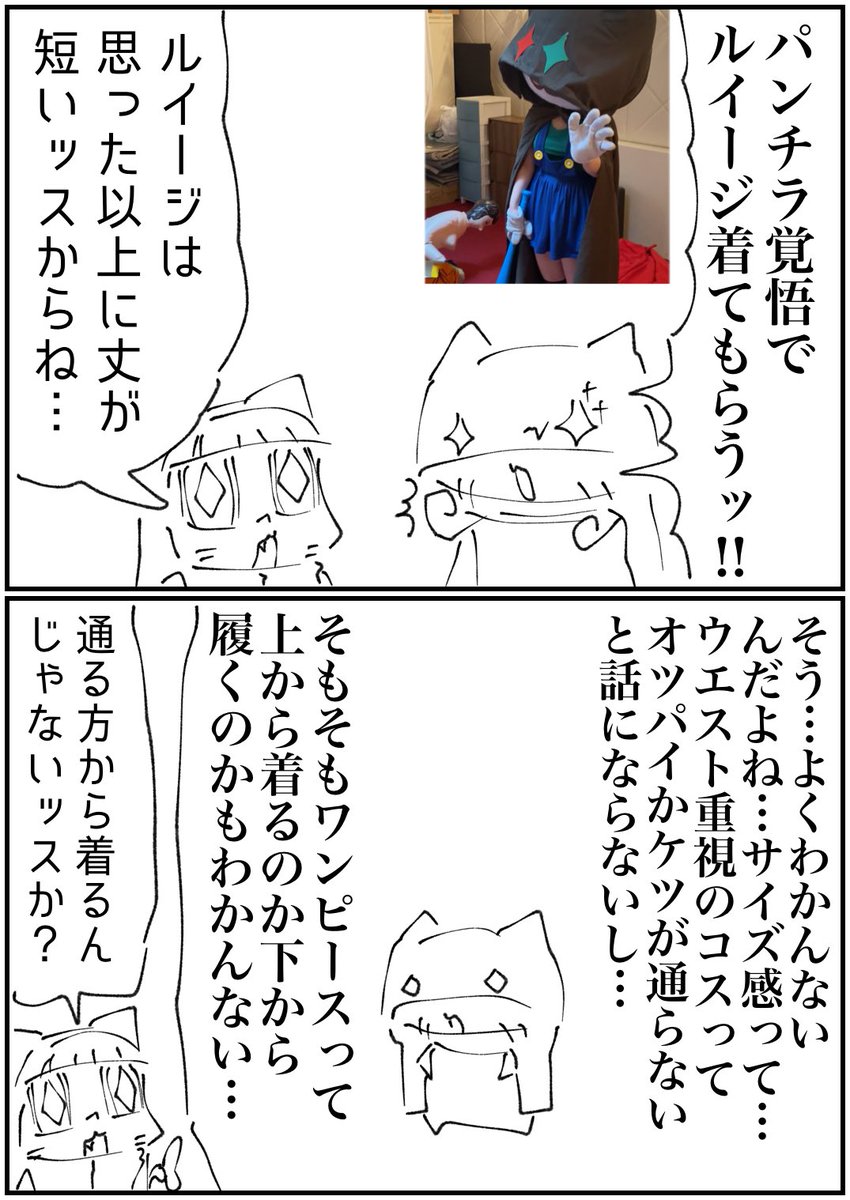 パンチラ覚悟で
ルイージ着てもらうッ!!
ルイージは
思った以上に丈が
短いッスからね…
そう…よくわかんない
んだよね…サイズ感って…
ウエスト重視のコスって
オツパイかケツが通らない
と話にならないし…
そもそもワンピースって
上から着るのか下から
履くのかもわかんない…
通る方から着るん
じゃないッスか？